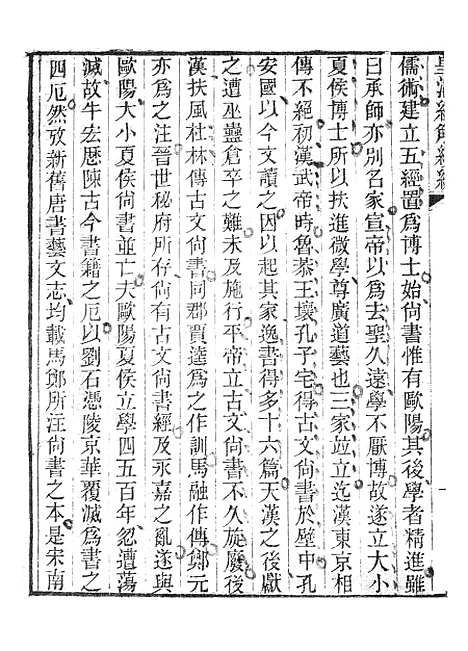 皇清經解續編
儒術建立五經置爲博士始尚書惟有歐陽其後學者精進雖
曰承師亦別名家宣帝以爲去聖久遠學不厭博故遂立大小
夏侯博士所以扶進微學尊廣道藝也三家竝立迄漢東京相
傳不絕初漢武帝時魯恭王壞孔子宅得古文尚書於壁中孔
安國以今文讀之因以起其家逸書得多十六篇天漢之後獻
之遭巫蠱倉卒之難未及施行平帝立古文尚書不久旋廢後
漢扶風杜林傳古文尚書同郡賈逵爲之作訓馬融作傳鄭元
亦爲之注晉世秘府所存尚有古文尚書經及永嘉之亂遂與
歐陽大小夏侯尚書並亡夫歐陽夏侯立學四五百年忽遭蕩
滅故牛宏歷陳古今書籍之厄以劉石憑陵京華覆滅爲書之
四厄然攷新舊唐書藝文志均載馬鄭所注尚書之本是宋南